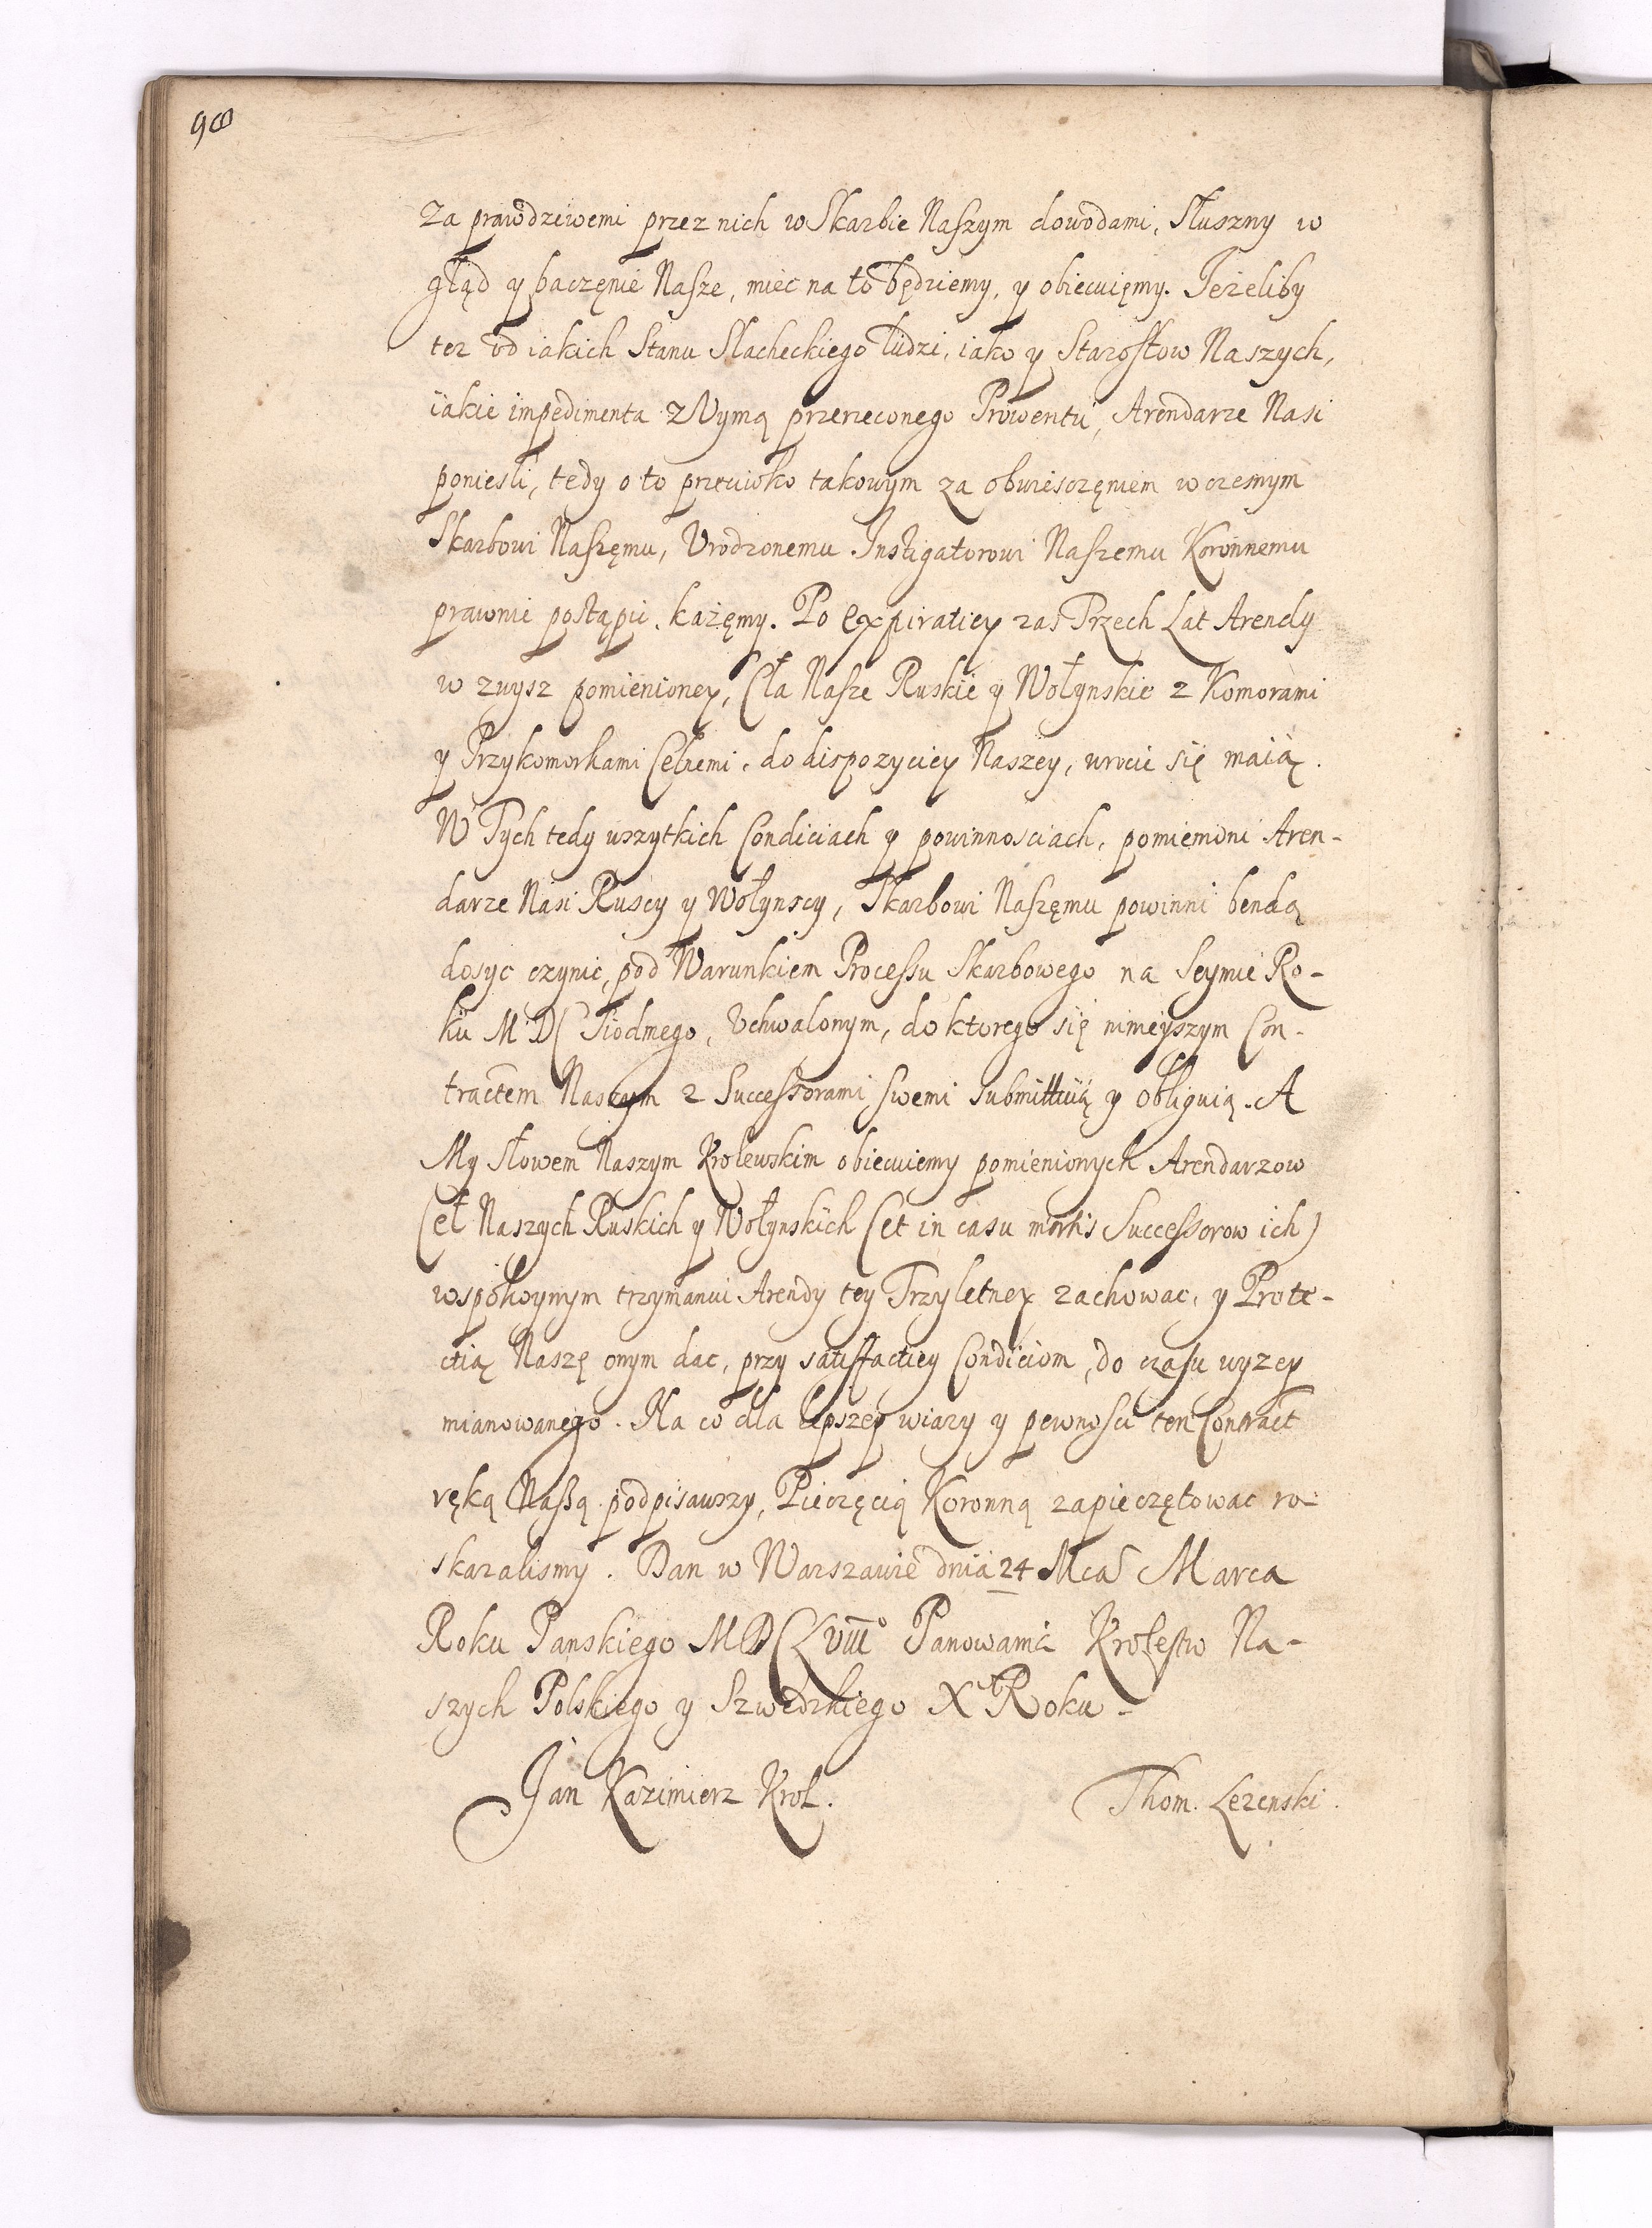 98
Za prawdziwemi przez nich w Skarbie Naszym dowodami, Słuszny w
gląd y baczęnie Nasze, miec na to będziemy, y obiecuięmy. Jeżeliby
tez od iakich Stanu Slacheckiego ludzi, iako y Starostow Naszych,
iakie impedimenta z Wymą przerzeconego Prowentu, Arendarze Nasi
poniesli, tedy o to przeciwko takowym za obwiesczęniem wczesnym
Skarbowi Naszęmu, Vrodzonemu Instigatorowi Naszemu Koronnemu
prawnie postąpic każęmy. Po Expiratiey zas Trzech Lat Arendy
w zwysz pomienioney, Cła Nasze Ruskie y Wołynskie z Komorami
y Przykomorkami Celnemi, do dispozyciey Naszey, wrocic się maią.
W Tych tedy wszytkich Condiciach y powinnosciach, pomienioni Aren-
darze Nasi Ruscy y Wołynscy, Skarbowi Naszęmu powinni bendą
dosyc czynic, pod Warunkiem Processu Skarbowego na Seymie Ro-
ku MDC Siodmego, Vchwalonym, do ktorego się ninieyszym Con-
tractem Naszym z Successorami swemi submittuią y obliguią. A
My słowem Naszym Krolewskim obiecuiemy pomienionych Arendarzow
Ceł Naszych Ruskich y Wołynskich (et in casu mortis Successorow ich)
wspokoynym trzymaniu Arendy tey Trzyletney zachowac, y Prote-
ctią Naszę onym dac, przy satisfactiey Condiciom, do czasu wyzey
mianowanego. Na co dla lepszey wiary y pewnosci ten Contract
ręką Naszą podpisawszy, Pieczęcią Koronną zapieczętowac ro-
skazalismy. Dan w Warszawie dnia 24 Mca Marca
Roku Panskiego MDCLVIII° Panowania Krolestw Na-
szych Polskiego y Szwedzkiego X Roku-
Jan Kazimierz Krol.
Thom. Lezenski.